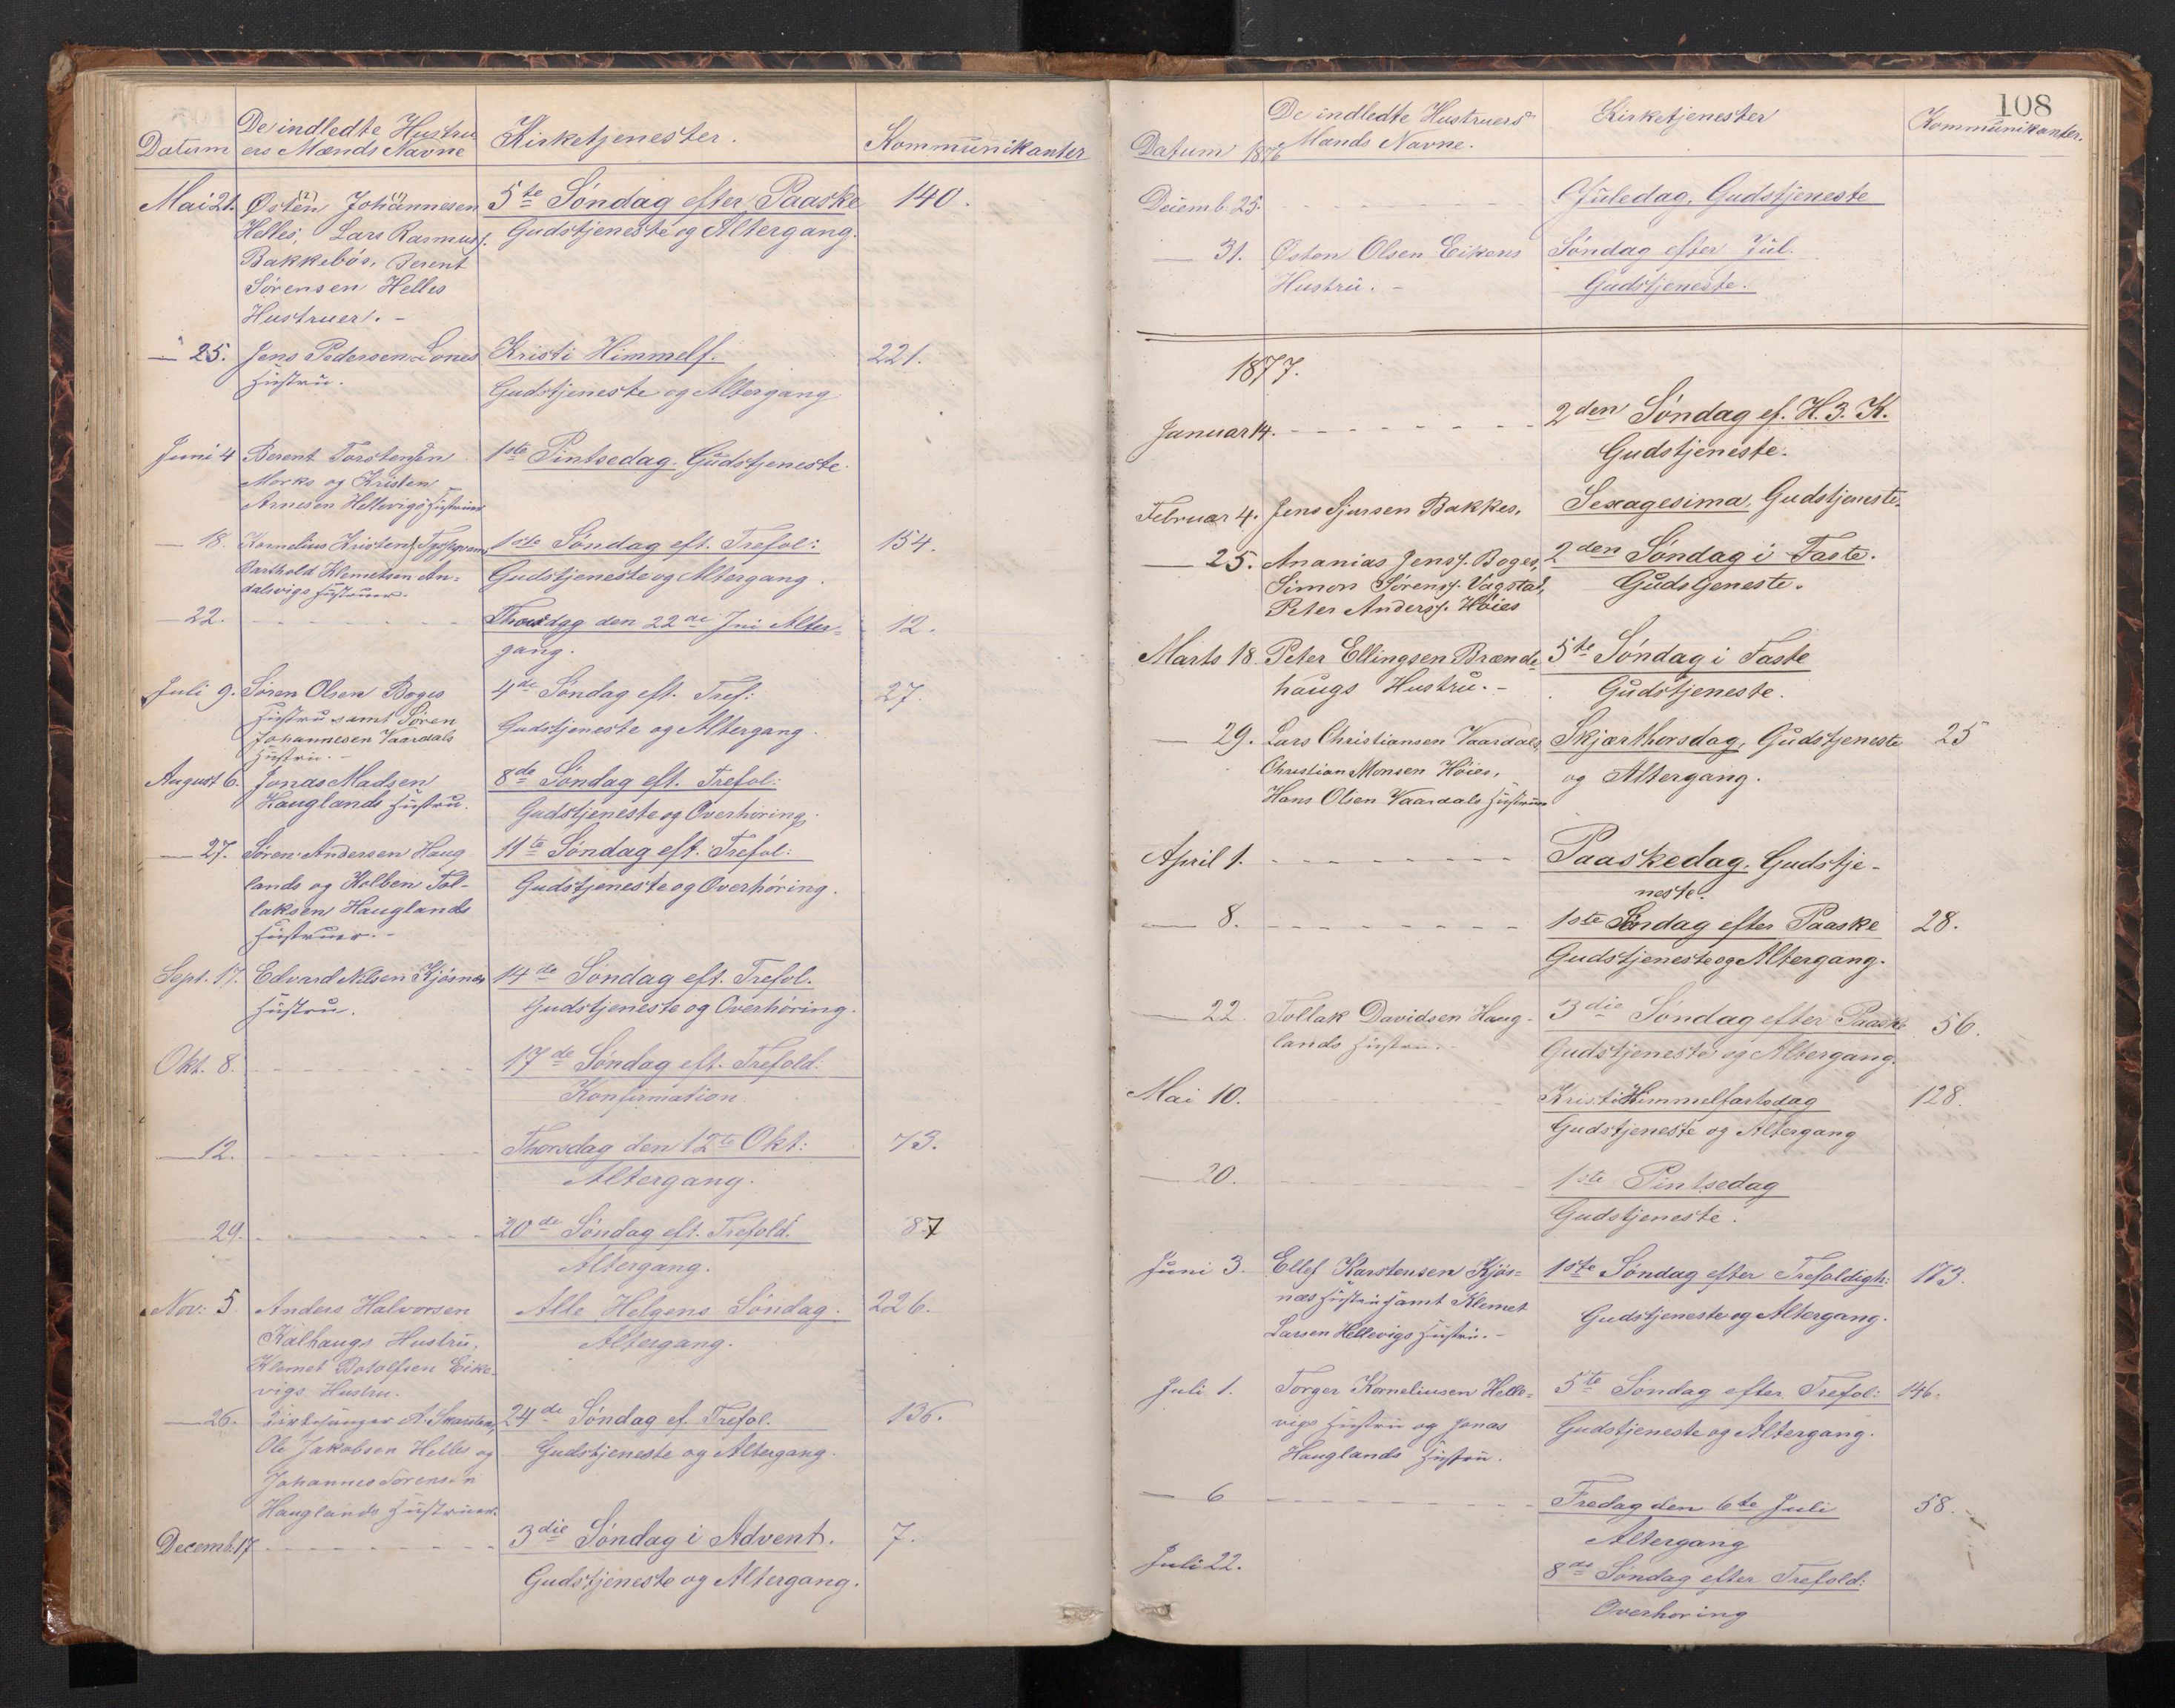 Datum
De indledte Hustru
ers Mænds Navne
Kirketjenester.
Kommunikanter
Mai 21. Østen Johannesen 5te Søndag efter Paaske 140.
Helles, Lars Rasmuss. Gudstjeneste og Altergang.
Bakkebös, Berent
Sørensen Helles
Hustruer. -
— 25. Jens Pedersen Lones Kristi Himmelf. 221.
Hustru. Gudstjeneste og Altergang
Juni 4 Berent Torstensen 1ste Pintsedag. Gudstjeneste.
Morks og Kristen
Arnesen Hellevigs Hustruer
— 18. Kornelius Kristens. 1ste Søndag eft. Trefol: 154.
Barthold Klemetsen An= Gudstjeneste og Altergang.
dalsvigs Hustruer.
— 22. - - - - - - - - Thorsdag den 22de Jni Alter= 12.
gang.
Juli 9. Søren Olsen Boges 4de Søndag eft. Tref: 27.
Hustru samt Søren Gudstjeneste og Altergang.
Johannesen Vaardals
Hustru. -
August 6. Jonas Madsen 8de Søndag eft. Trefol:
Hauglands Hustru. Gudstjeneste og Overhöring.
— 27. Søren Andersen Haug 11te Søndag eft. Trefol:
lands og Kolben Tol- Gudstjeneste og Overhöring.
laksen Hauglands
Hustruer. -
Sept. 17. Edvard Nilsen Kjösnes 14de Søndag eft. Trefol.
Hustru. Gudstjeneste og Overhöring.
Okt. 8. - - - - - - - - 17de Søndag eft. Trefold.
Konfirmation
— 12. - - - - - - - - Thorsdag den 12te Okt: 73.
Altergang.
— 29. - - - - - - - - 20de Søndag eft. Trefold. 87
Altergang.
Nov: 5. Anders Halvorsen Alle Helgens Søndag. 226.
Kalhaugs Hustru, Altergang.
Klemet Botolfsen Eike-
vigs Hustru.
— 26. Kirkesanger A. Skarstens, 24de Søndag ef. Trefol. 136.
Ole Jakobsen Helles og Gudstjeneste og Altergang.
Johannes Sørensen
Hauglands Hustruer.
Decemb. 17 - - - - - - - - 3die Søndag i Advent. 7.
Gudstjeneste og Altergang.
108
Datum 1876
De indledte Hustruers
Mands Navne.
Kirketjenester
Kommunikanter.
Decemb. 25. - - - - - - - - Juledag. Gudstjeneste
— 31. Østen Olsen Eikens Søndag efter Jul.
Hustru. - Gudstjeneste.
1877.
Januar 14. - - - - - - - - 2den Søndag ef. H. 3. K.
Gudstjeneste.
Februar 4. Jens Sjursen Bakkes, Sexagesima, Gudstjeneste.
— 25. Ananias Jenss. Boges, 2den Søndag i Faste.
Simon Sørenss. Vagstad, Gudstjeneste.
Peter Anderss. Höies
Marts 18. Peter Ellingsen Brænde- 5te Søndag i Faste
haugs Hustru. - Gudstjeneste.
— 29. Lars Christiansen Vaardals, Skjærthorsdag, Gudstjeneste 25
Christian Monsen Höies, og Altergang.
Hans Olsen Vaardals Hustruer
April 1. - - - - - - - - Paaskedag. Gudstje-
neste.
— 8. - - - - - - - - 1ste Søndag efter Paaske 28.
Gudstjeneste og Altergang.
— 22. Tollak Davidsen Haug- 3die Søndag efter Paaske 56.
lands Hustru. Gudstjeneste og Altergang.
Mai 10. - - - - - - - - Kristi Himmelfartsdag 128.
Gudstjeneste og Altergang
— 20. - - - - - - - - 1ste Pintsedag
Gudstjeneste.
Juni 3. Ellef Karstensen Kjös= 1ste Søndag efter Trefoldigh: 173.
næs Hustru samt Klemet Gudstjeneste og Altergang.
Larsen Hellevigs Hustru. -
Juli 1. Torger Korneliusen Helle= 5te Søndag efter Trefol: 146.
vigs Hustru og Jonas Gudstjeneste og Altergang.
Hauglands Hustru.
— 6 - - - - - - - - Fredag den 6te Juli 58.
Altergang
Juli 22. 8de Søndag efter Trefold:
Overhöring